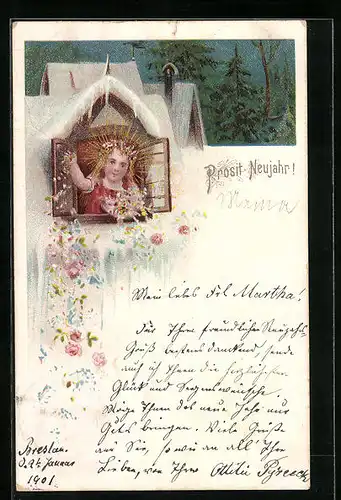 Prosit Neujahr!
Mama
Mein liebes Frl Martha!
Für Ihren freundlichen Neujahrs-
Gruß bestens dankend, sende
auch ich Ihnen die herzlichsten
Glück und Segenswünsche.
Möge Ihnen das neue Jahr nur
Gutes bringen. Viele Grüße
an Sie, sowie an all Ihre
Lieben, von Ihrer Ottilie
Breslau.
Januar
1901.